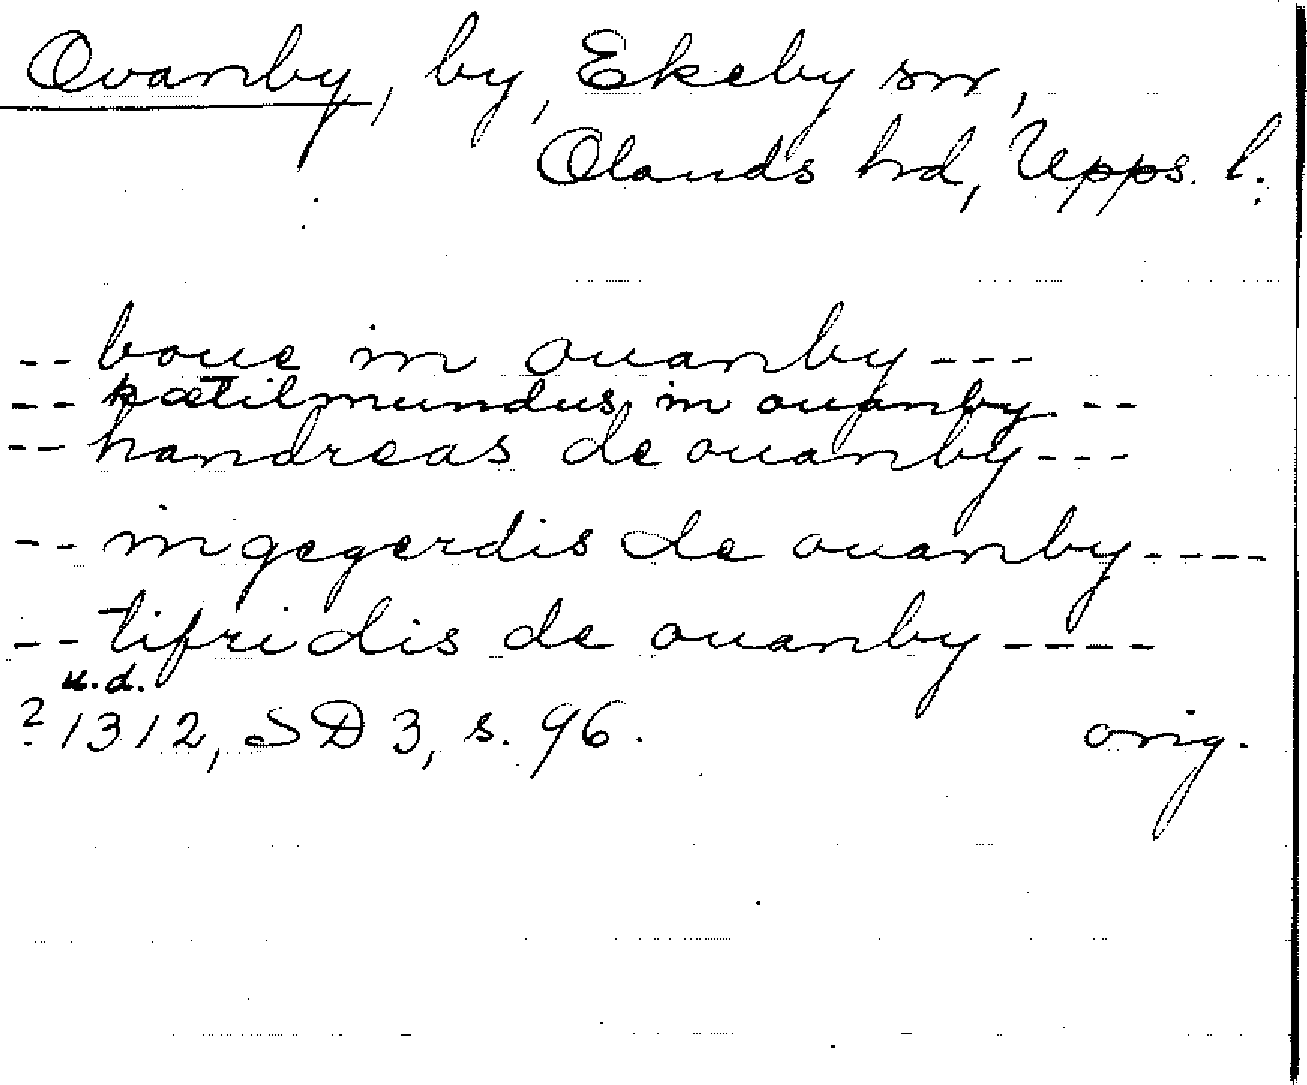 Ovanby, by, Ekeby sn,
Olands hd, Upps. l.
-- boue in ouanby ---
-- kætilmundus in ouanby. --
-- handreas de ouanby ---
-- ingegerdis de ouanby ----
-- tifridis de ouanby ----
u.d.
? 1312, SD 3, s. 96. orig.